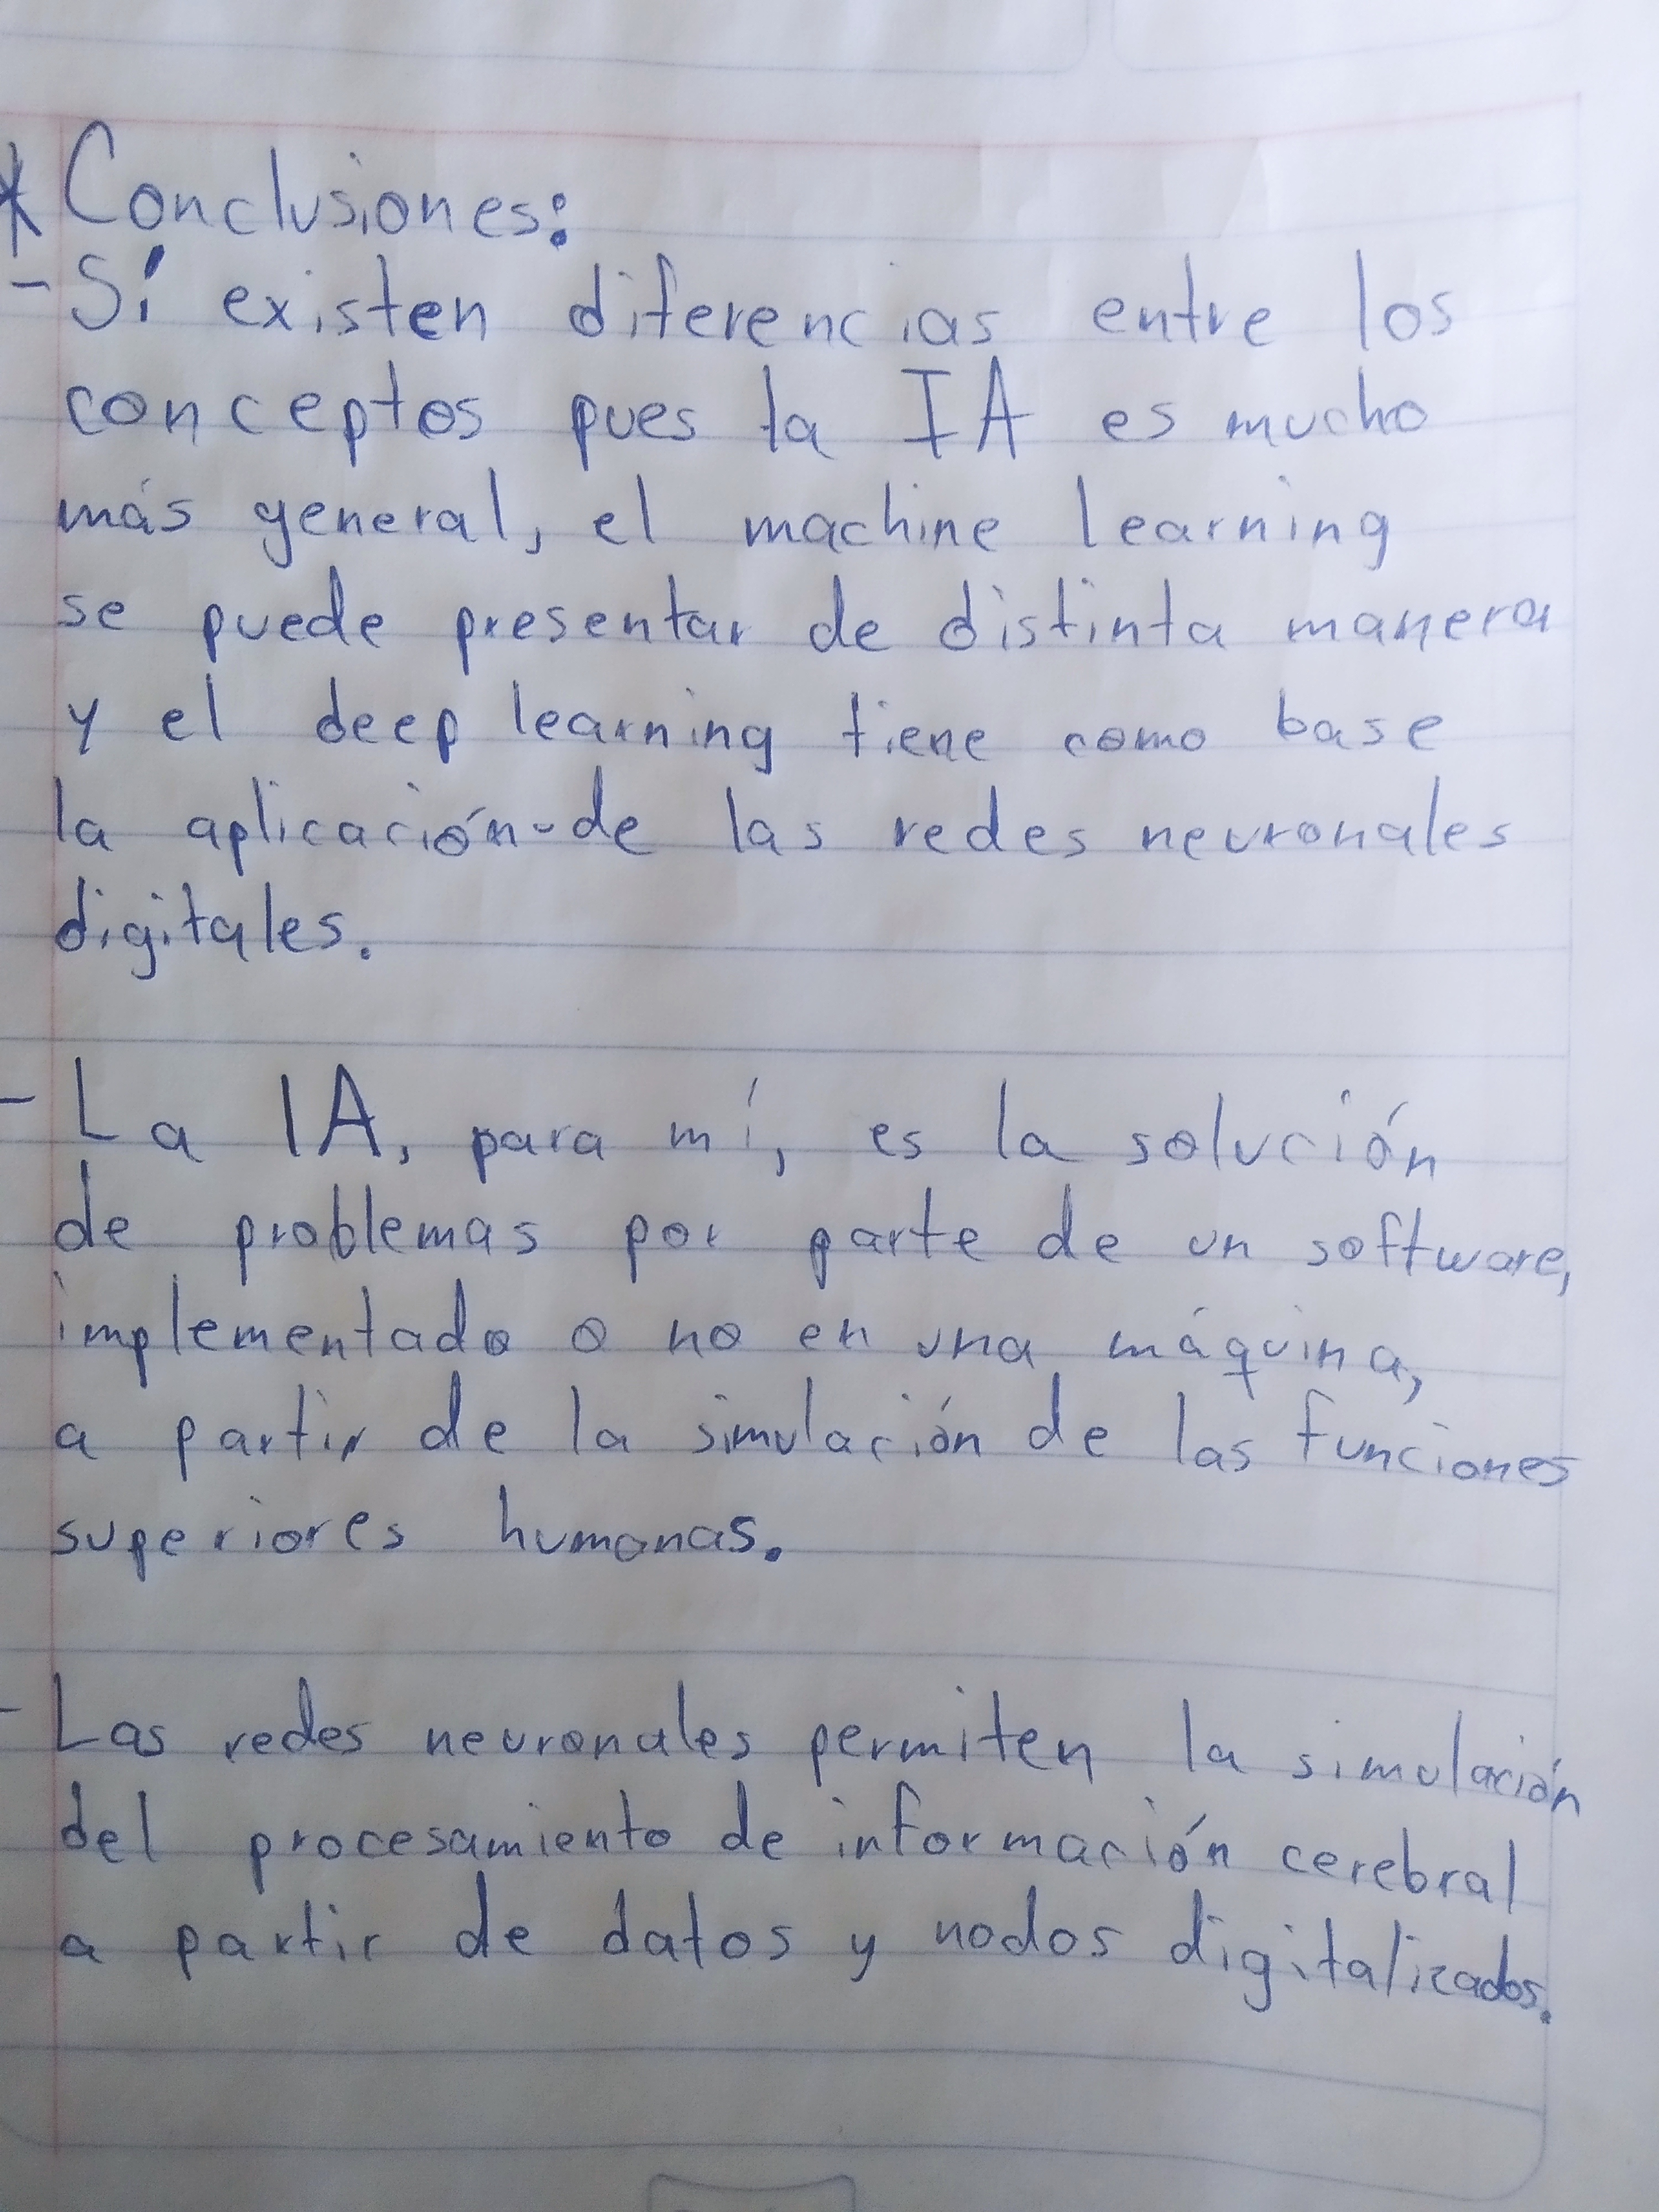 * Conclusiones:
- Sí existen diferencias entre los
conceptos pues la IA es mucho
más general, el machine learning
se puede presentar de distinta manera
y el deep learning tiene como base
la aplicación de las redes neuronales
digitales.
- La IA, para mí, es la solución
de problemas por parte de un software,
implementado o no en una máquina,
a partir de la simulación de las funciones
superiores humanas.
- Las redes neuronales permiten la simulación
del procesamiento de información cerebral
a partir de datos y nodos digitalizados.